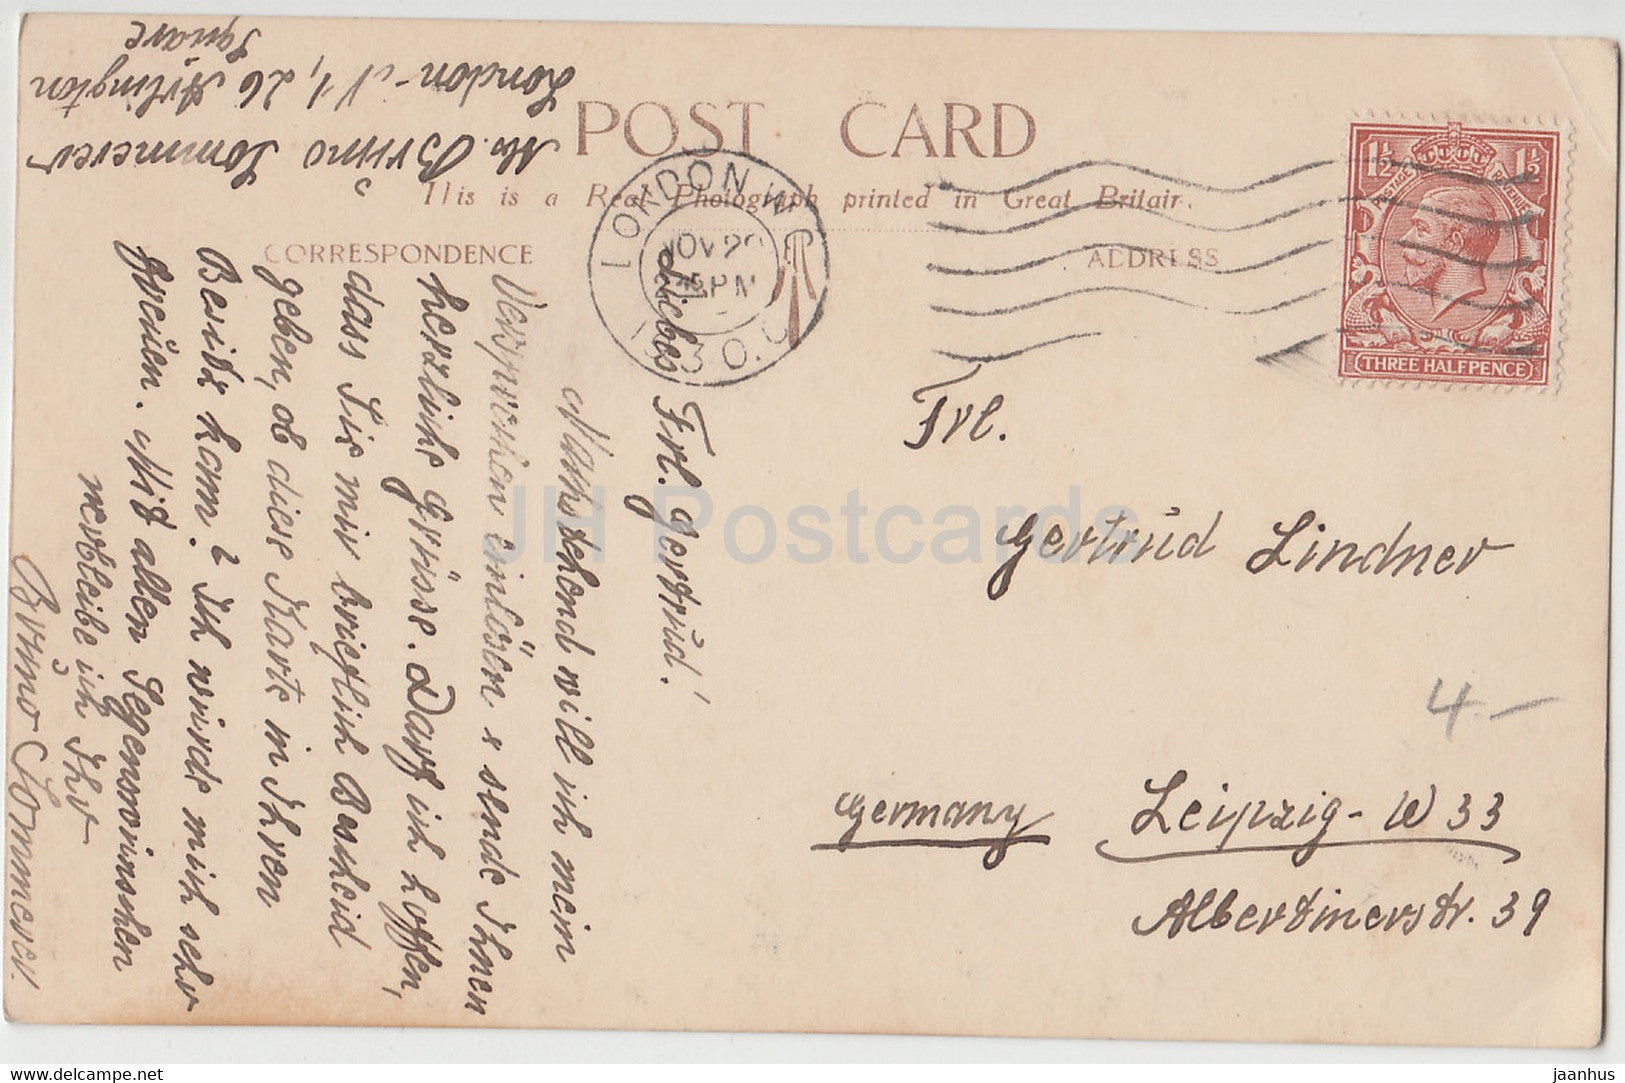 POST CARD
This is a Real Photograph printed in Great Britain.
CORRESPONDENCE
ADDRESS
LONDON W
NOV 29
PM
1930
1½ 1½
POSTAGE REVENUE
THREE HALFPENCE
Mr. Bruno Sommerer
London-N1, 26 Arlington
Square
Liebes Frl. Gertrud!
Nachstehend will ich mein
Versprechen einlösen & sende Ihnen
herzliche Grüsse. Darf ich hoffen,
dass Sie mir brieflich Bescheid
geben, ob diese Karte in Ihren
Besitz kam? Ich würde mich sehr
freuen. Mit allen Segenswünschen
verbleibe ich Ihr
Bruno Sommerer.
Frl.
Gertrud Lindner
4.—
Germany Leipzig-W 33
Albertinerstr. 39
JH Postcards
delcampe.net
jaanhus